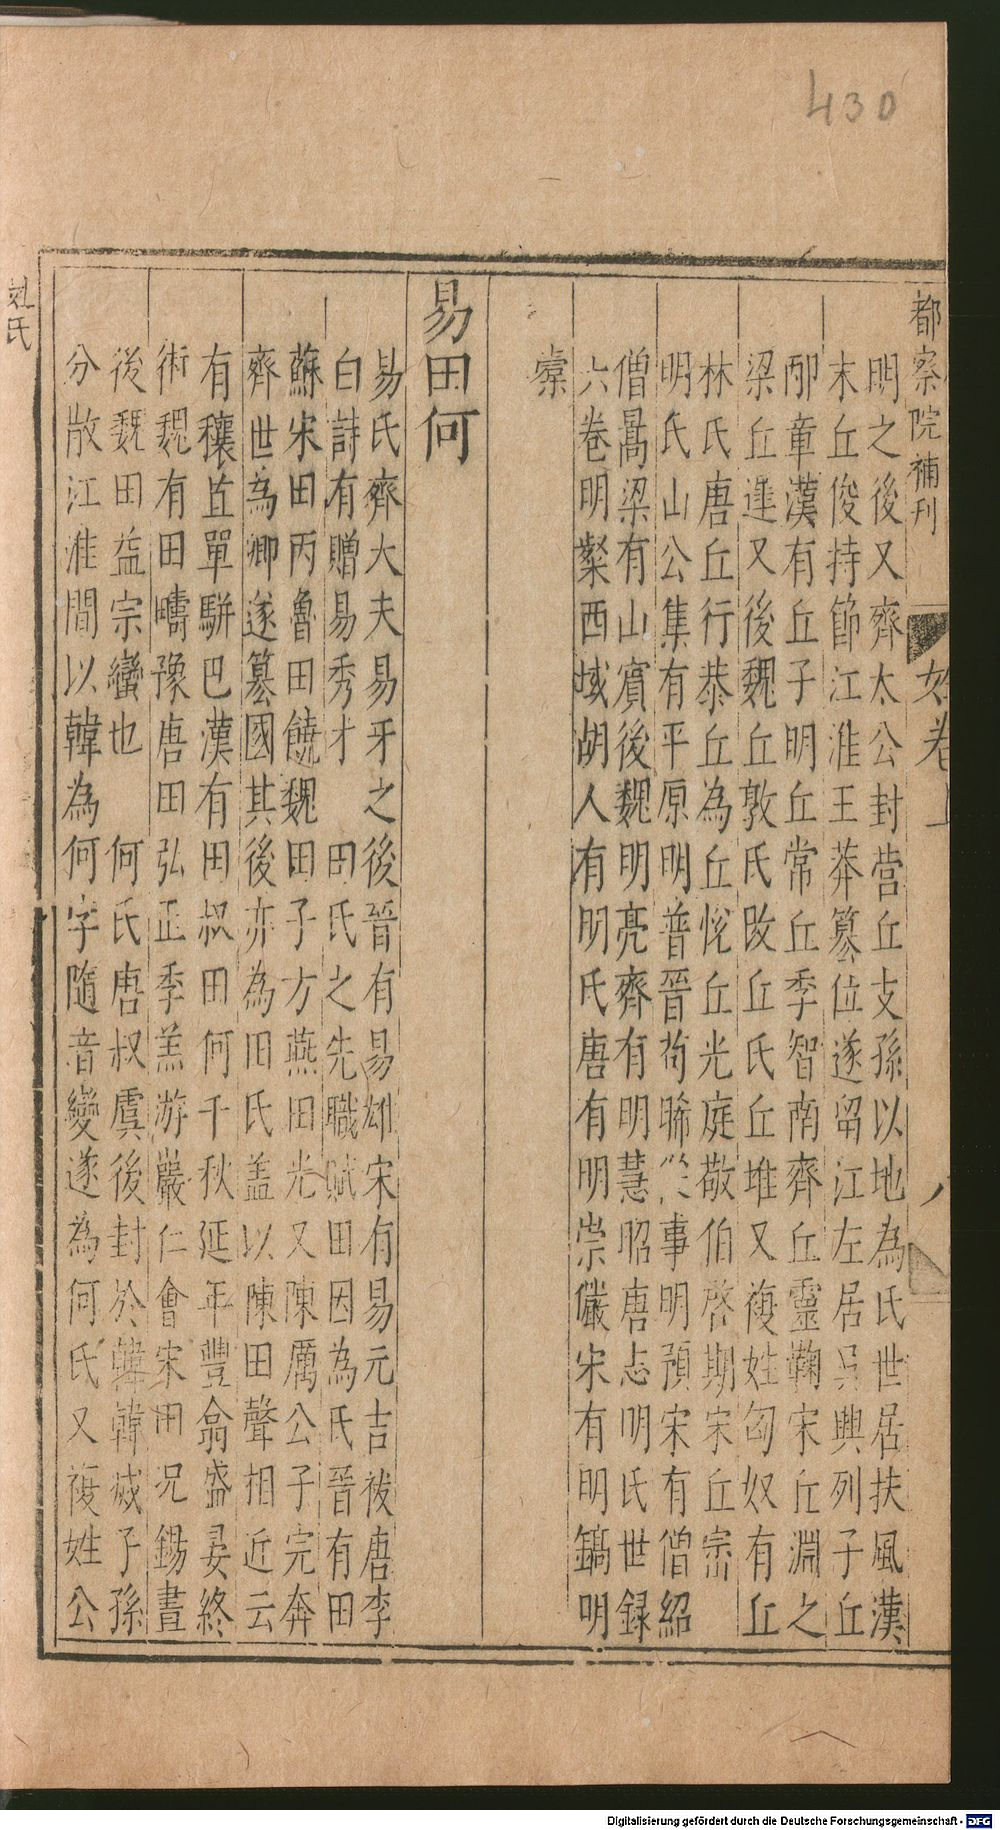 430
都察院補刊
姓卷上
八
明之後又齊太公封营丘支孫以地為氏世居扶風漢
末丘俊持節江淮王莽篡位遂留江左居吳興列子丘
邴章漢有丘子明丘常丘季智南齊丘靈鞠宋丘淵之
梁丘進又後魏丘敦氏改丘氏丘堆又複姓匈奴有丘
林氏唐丘行恭丘為丘悅丘光庭敬伯啓期宋丘崈
明氏山公集有平原明普晉荀晞從事明預宋有僧紹
僧暠梁有山賓後魏明亮齊有明慧昭唐志明氏世録
六卷明粲西域胡人有明氏唐有明崇儼宋有明鎬明
槖
易田何
易氏齊大夫易牙之後晉有易雄宋有易元吉祓唐李
白詩有贈易秀才　田氏之先職賦田因為氏晉有田
蘇宋田丙魯田饒魏田子方燕田光又陳厲公子完奔
齊世為卿遂篡國其後亦為田氏盖以陳田聲相近云
有穰苴單駢巴漢有田叔田何千秋延年豐翕盛晏終
術魏有田疇豫唐田弘正季羔游巖仁會宋田况錫晝
後魏田益宗蠻也　何氏唐叔虞後封於韓韓滅子孫
分散江淮間以韓為何字隨音變遂為何氏又複姓公
姓氏
Digitalisierung gefördert durch die Deutsche Forschungsgemeinschaft - DFG